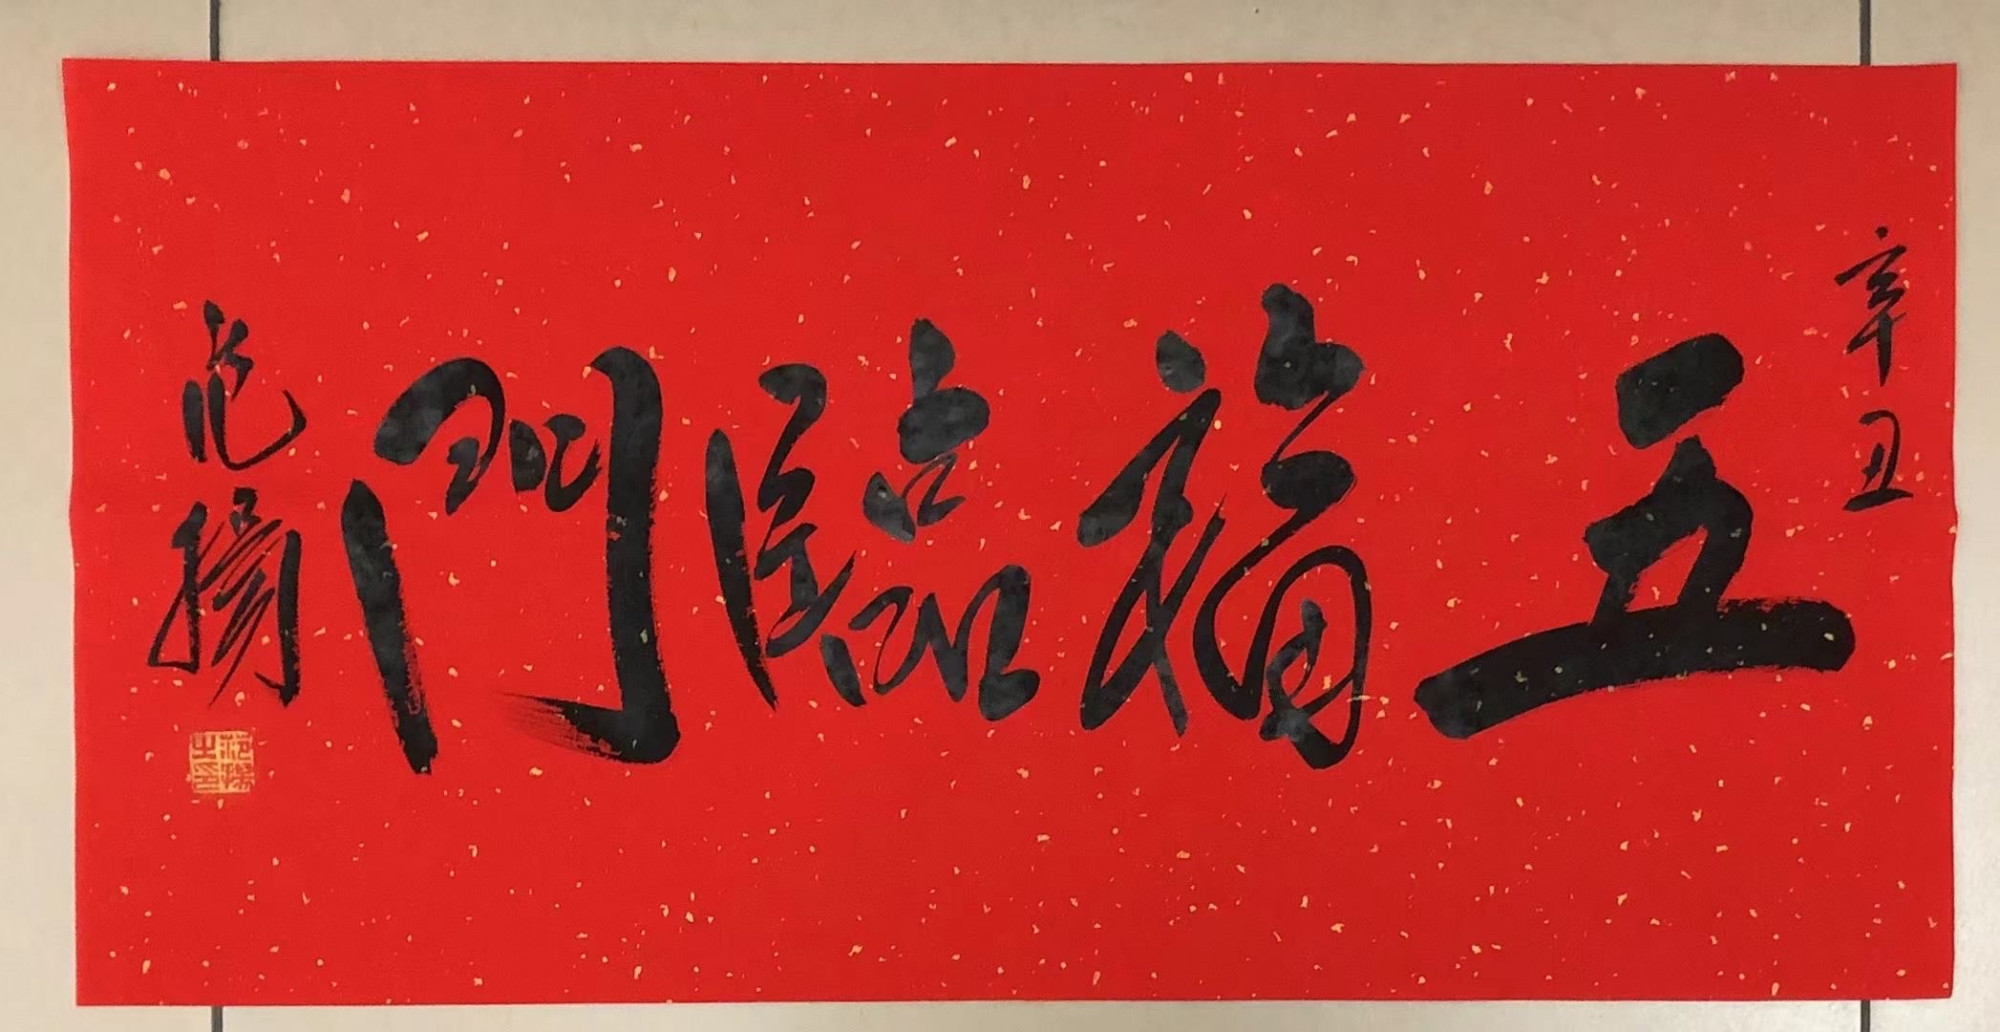 辛丑
五福臨門
范揚